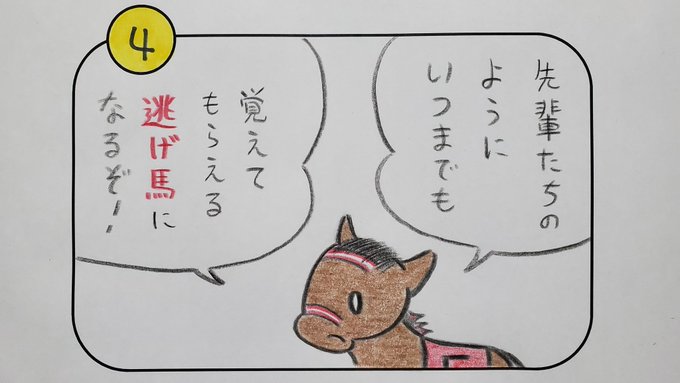 4
先輩たちの
ように
いつまでも
覚えて
もらえる
逃げ馬に
なるぞ!